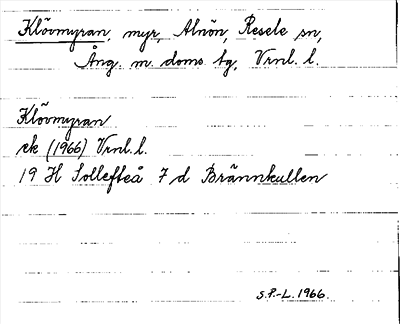 Klövmyran, myr, Alnön, Resele sn,
Ång. m. doms. tg, Vrnl. l.
Klövmyran
ek (1966) Vrnl. l.
19 H Sollefteå 7 d Brännkullen
S.P.-L. 1966.